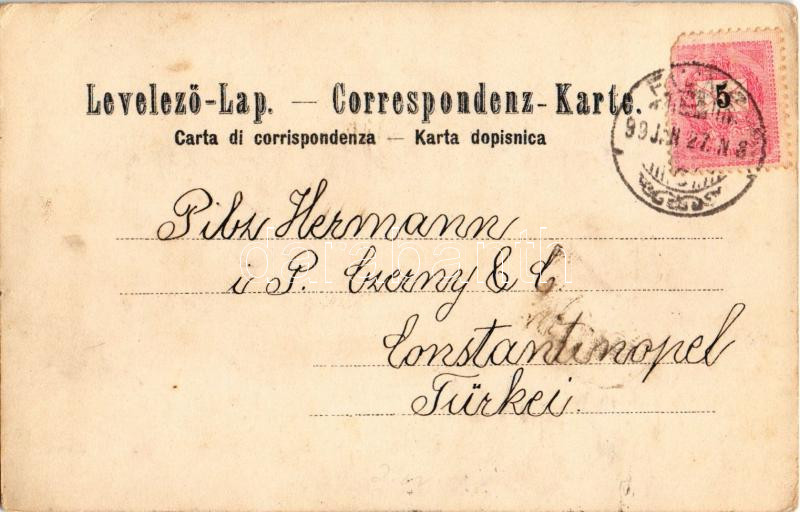 Levelező-Lap. — Correspondenz-Karte.
Carta di corrispondenza — Karta dopisnica
5
99 JAN 27. N 8
Pilz Hermann
i P. Czerny & C
Constantinopel
Türkei.
darabanth